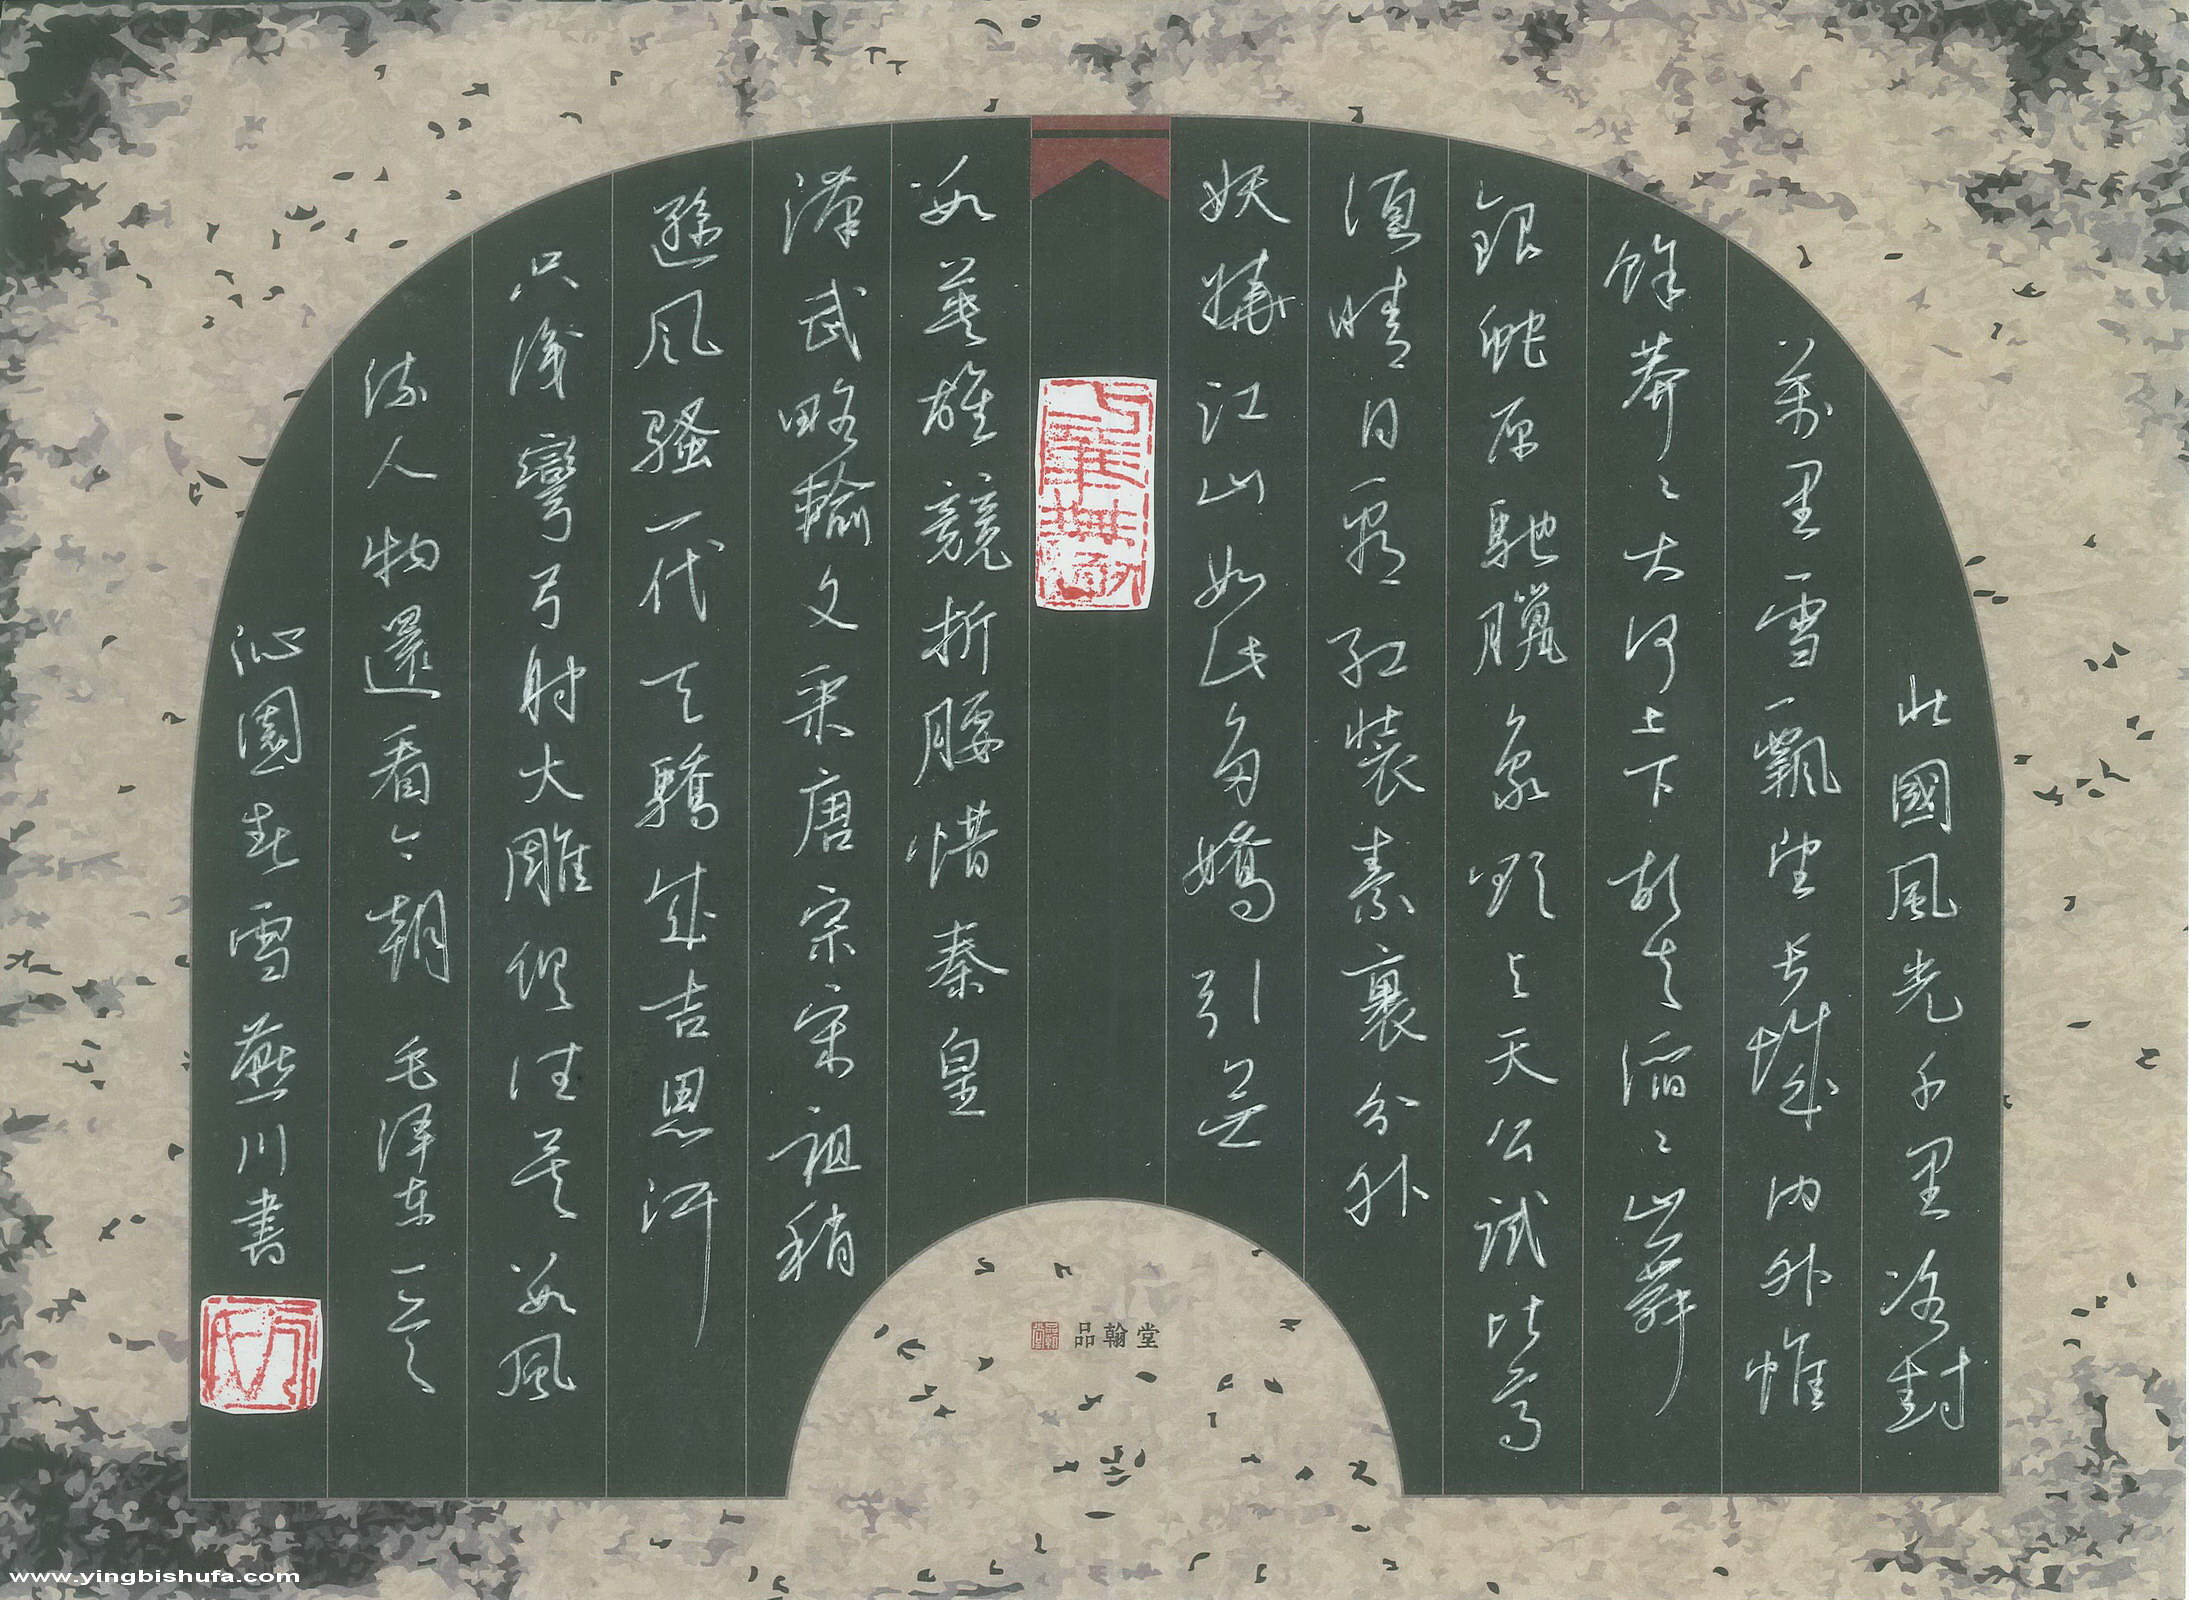 北國風光千里冰封
萬里雪飄望長城内外惟
餘莽〻大河上下頓失滔〻山舞
銀蛇原馳臘象欲與天公試比高
須晴日看紅裝素裹分外
妖嬈江山如此多嬌引無
数英雄競折腰惜秦皇
漢武略輸文采唐宗宋祖稍
遜風騷一代天驕成吉思汗
只識彎弓射大雕俱往矣数風
流人物還看今朝 毛泽东一首
沁園春雪燕川書
品翰堂
www.yingbishufa.com